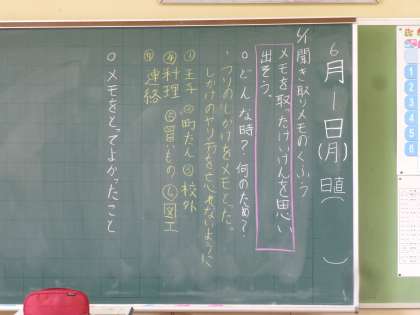 6月1日(月) 日直( )
1/1 聞き取りメモのくふう
メモを取ったけいけんを思い
出そう。
○どんな時？何のため？
・つりのしかけをメモとった。
しかけのやり方を忘れないように
① 王子 ② 町たん ③ 校外
④ 料理 ⑤ 買いもの ⑥ 図工
⑦ 連絡
○メモをとってよかったこと
1
2
3
4
5
6